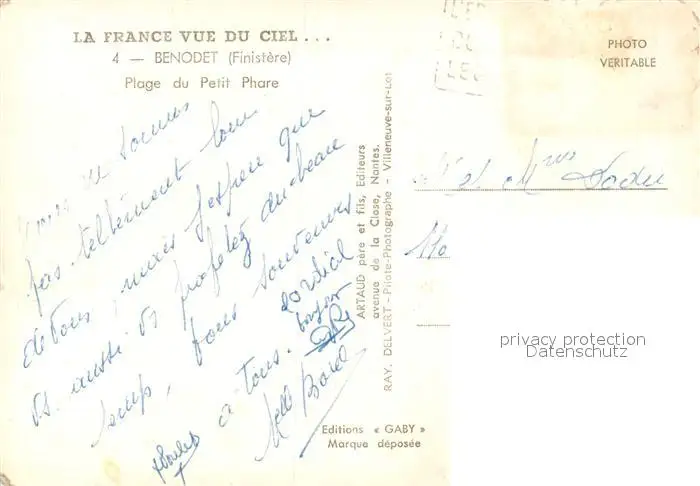 LA FRANCE VUE DU CIEL ...
4 — BENODET (Finistère)
Plage du Petit Phare
PHOTO
VERITABLE
Nous ne sommes
pas tellement loin
de vous, mais j'espère que
vs. aussi vs profitez du beau
temp, bons souvenirs
à tous.
cordial
bonjour
Gaby
Melle Borel
ARTAUD père et fils, Editeurs
avenue de la Close, Nantes.
RAY. DELVERT - Pilote-Photographe - Villeneuve-sur-Lot
et Mme
privacy protection
Datenschutz
Editions « GABY »
Marque déposée